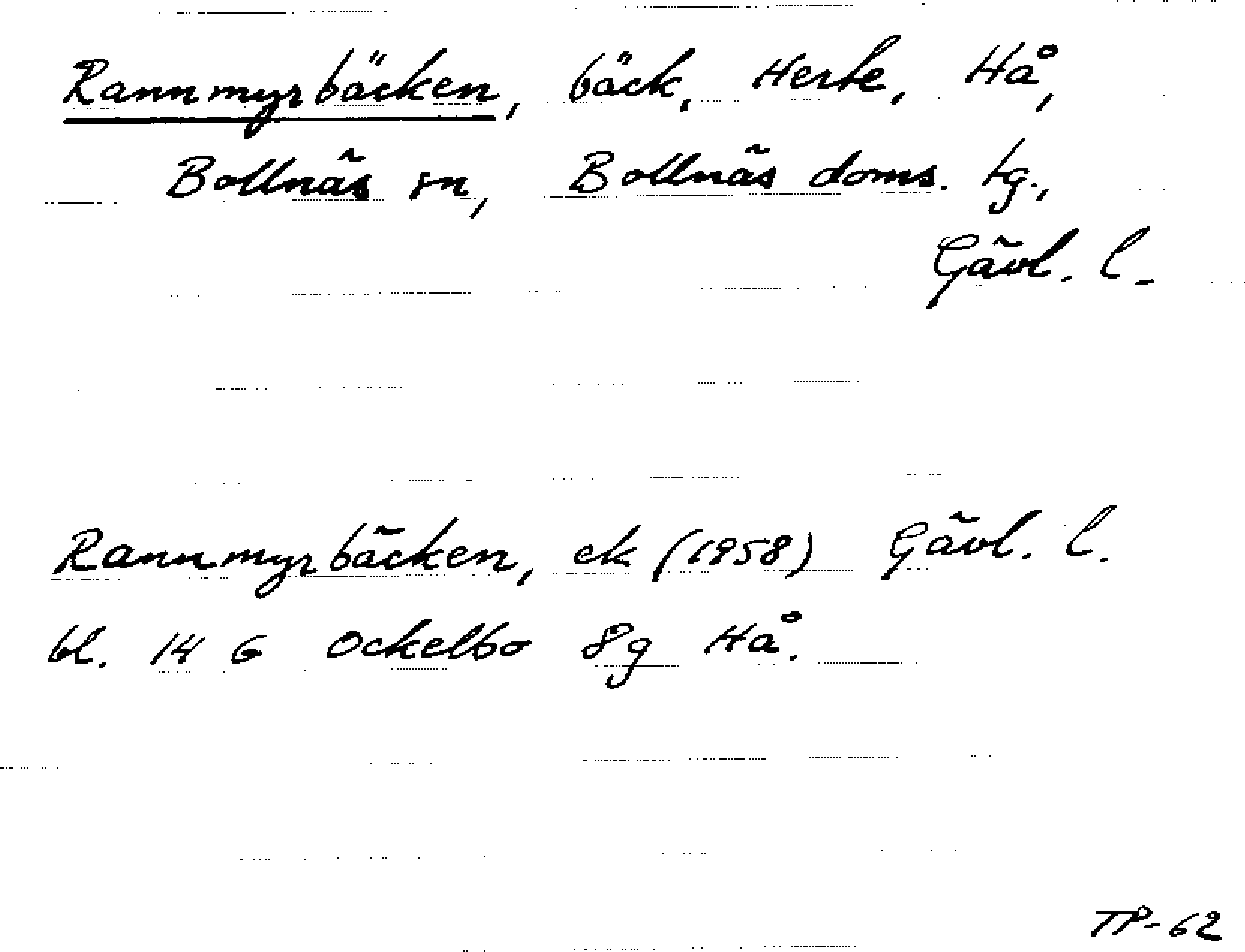 Rannmyrbäcken, bäck, Herte, Hå,
Bollnäs sn, Bollnäs doms. tg.,
Gävl. l.
Rannmyrbäcken, ek (1958) Gävl. l.
bl. 14 G Ockelbo 8g Hå.
TP-62